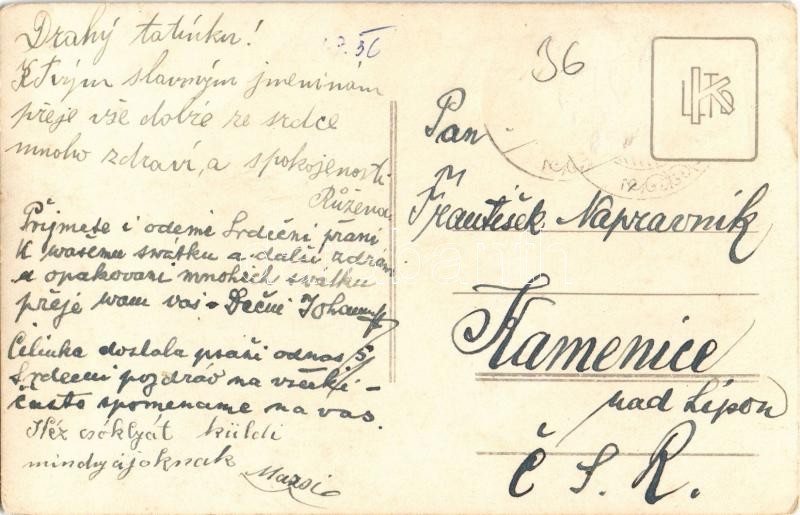 Drahý tatínku!
K Tvým slavným jmeninám
přeje vše dobře ze srdce
mnoho zdraví, a spokojenosti
Růžena
Přijmete i odemě Srdečni přani
K wašemu swátku a dalši zdrawi
a opakovani mnohich swátku
přeje wam vaš - Johann
Cilinka dostala prani odnas
Srdecni pozdráv na všecki -
často spomename na vas.
Kéz csóklyát küldi
mindnyájoknak
36
36
Pan
František Napravnik
Kamenice
nad Lípou
Č S. R.